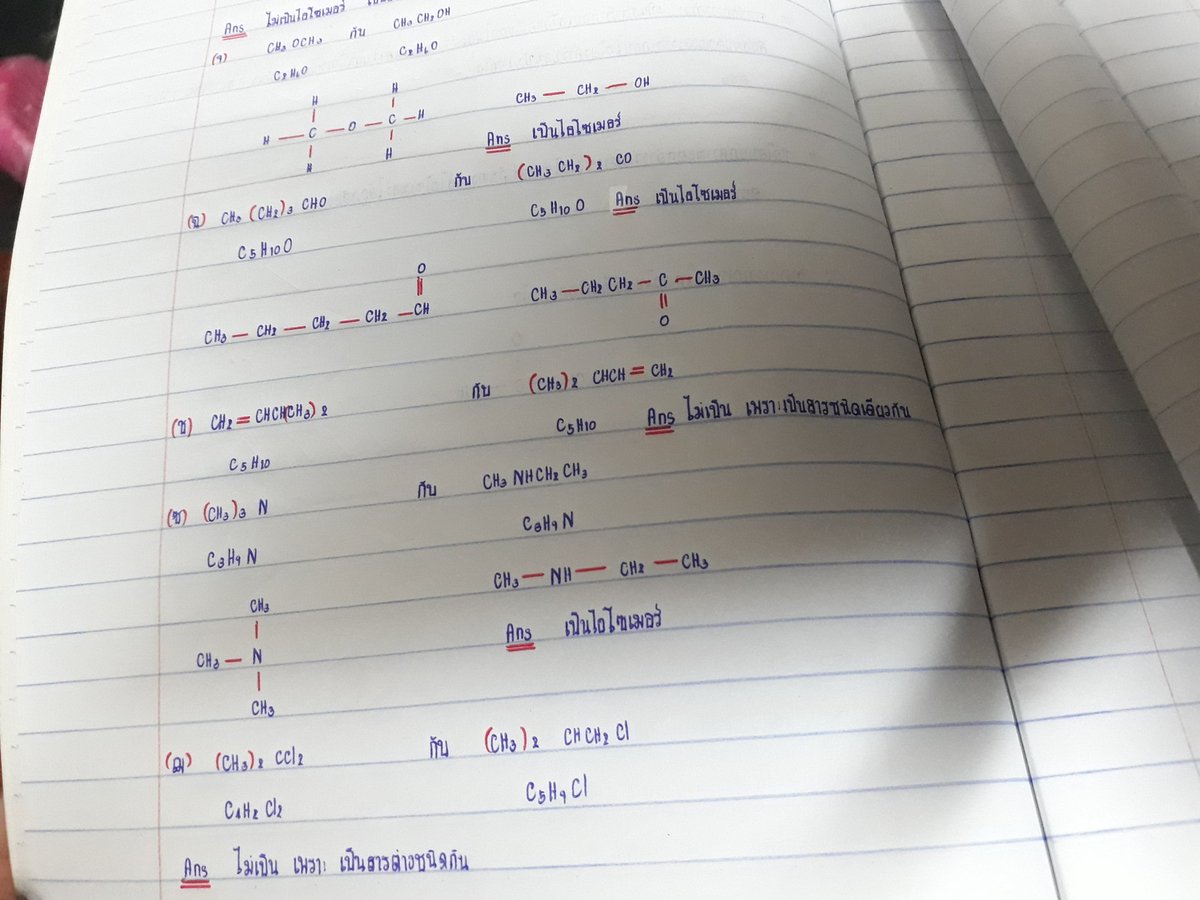 Ans ไม่เป็นไอโซเมอร์
(จ) CH₃ OCH₃ กับ CH₃ CH₂ OH
C₂H₆O C₂H₆O
H H
H — C — O — C — H CH₃ — CH₂ — OH
H H
Ans เป็นไอโซเมอร์
(ฉ) CH₃ (CH₂)₃ CHO กับ (CH₃ CH₂)₂ CO
C₅H₁₀O C₅H₁₀O Ans เป็นไอโซเมอร์
O
CH₃ — CH₂ — CH₂ — CH₂ — CH CH₃ — CH₂ CH₂ — C — CH₃
O
(ช) CH₂ = CHCH(CH₃)₂ กับ (CH₃)₂ CHCH = CH₂
C₅H₁₀ C₅H₁₀ Ans ไม่เป็น เพราะเป็นสารชนิดเดียวกัน
(ซ) (CH₃)₃ N กับ CH₃ NHCH₂ CH₃
C₃H₉N C₃H₉N
CH₃
CH₃ — N CH₃ — NH — CH₂ — CH₃
CH₃
Ans เป็นไอโซเมอร์
(ฌ) (CH₃)₂ CCl₂ กับ (CH₃)₂ CHCH₂ Cl
C₄H₂ Cl₂ C₅H₉ Cl
Ans ไม่เป็น เพราะ เป็นสารต่างชนิดกัน